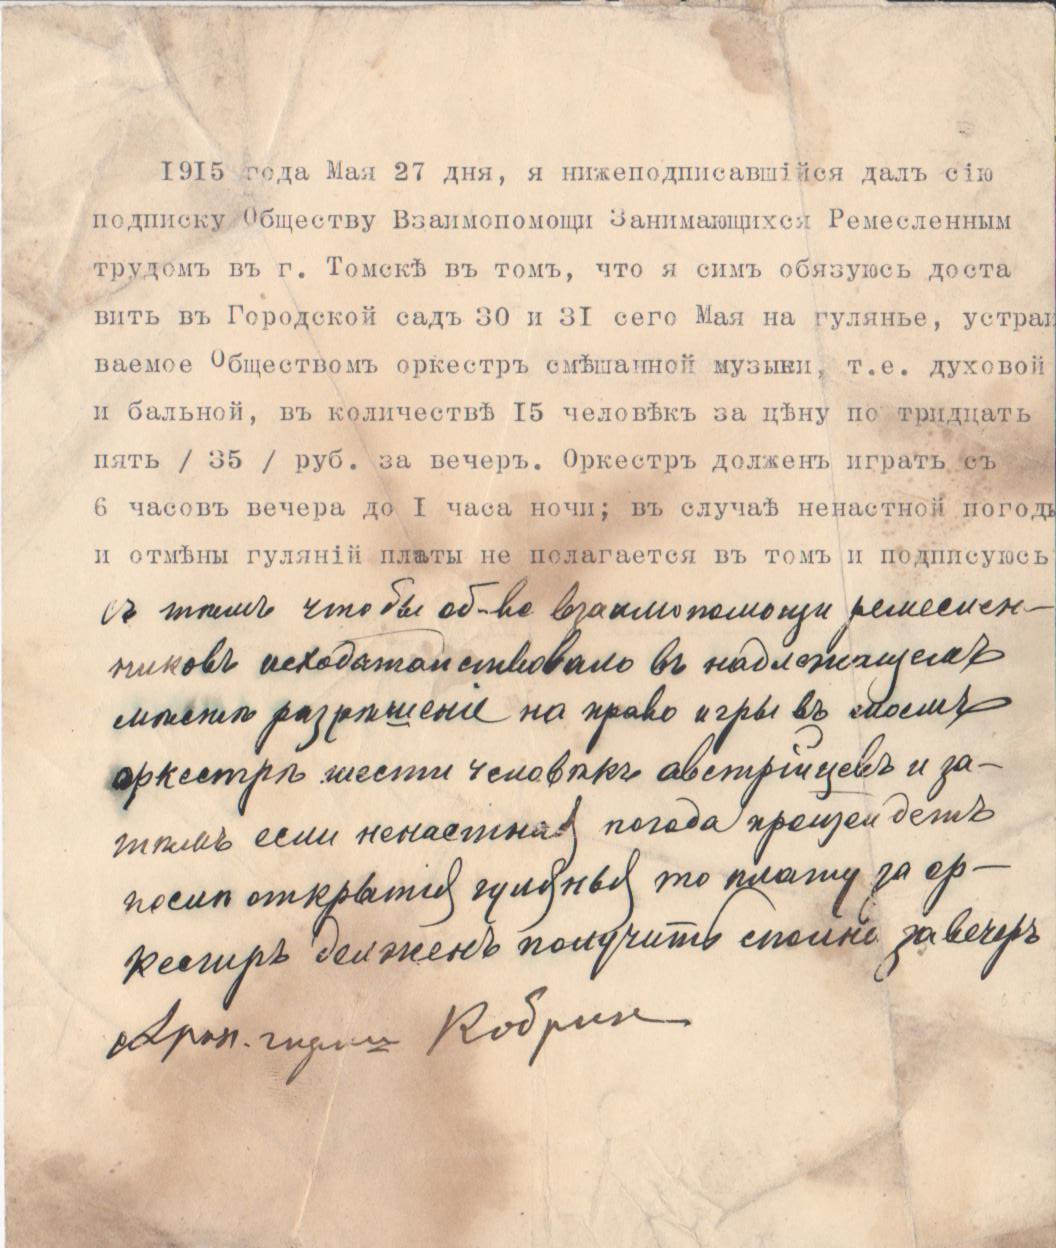 1915 года Мая 27 дня, я нижеподписавшійся далъ сію
подписку Обществу Взаимопомощи Занимающихся Ремесленным
трудомъ въ г. Томскѣ въ томъ, что я симъ обязуюсь доста
вить въ Городской садъ 30 и 31 сего Мая на гулянье, устраи
ваемое Обществомъ оркестръ смѣшанной музыки, т.е. духовой
и бальной, въ количествѣ 15 человѣкъ за цѣну по тридцать
пять / 35 / руб. за вечеръ. Оркестръ долженъ играть съ
6 часовъ вечера до 1 часа ночи; въ случаѣ ненастной погоды
и отмѣны гуляній платы не полагается въ томъ и подписуюсь
съ тѣмъ чтобы об-во взаимопомощи ремеслен-
никовъ исходатайствовало въ надлежащемъ
мѣстѣ разрѣшеніе на право игры въ моемъ
оркестрѣ шести человѣкъ австрійцевъ и за-
тѣмъ если ненастная погода произойдетъ
послѣ открытія гулянья то плату за ор-
кестръ долженъ получить сполна за вечеръ
Кобрин